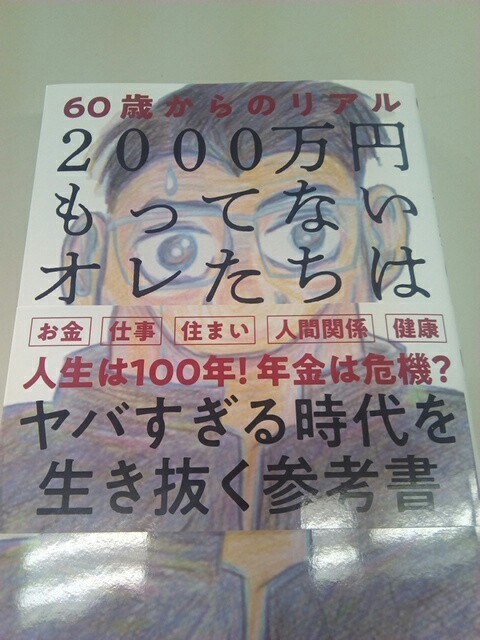 60歳からのリアル
2000万円
もってない
オレたちは
お金 仕事 住まい 人間関係 健康
人生は100年!年金は危機?
ヤバすぎる時代を
生き抜く参考書